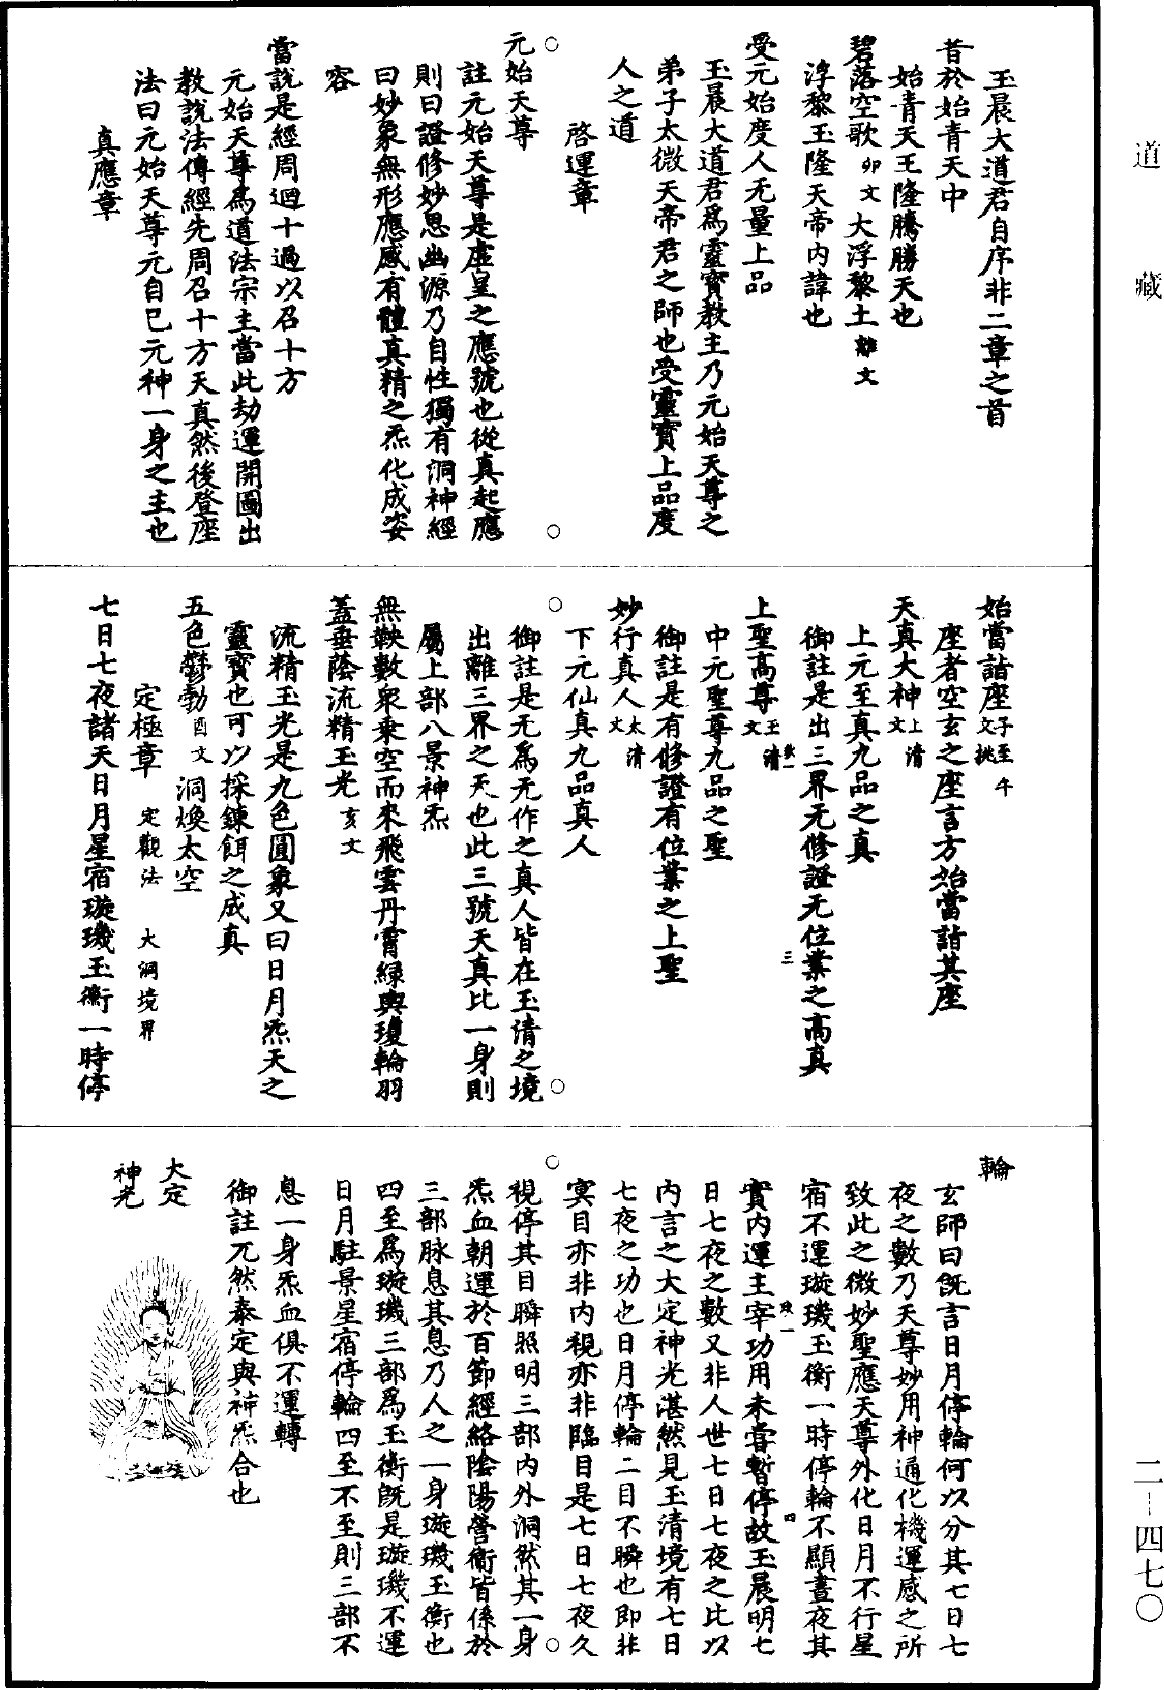 道藏
玉晨大道君自序非二章之首
昔於始青天中
始青天王隆騰勝天也
碧落空歌卯文大浮黎土離文
浮黎玉隆天帝內諱也
受元始度人无量上品
玉晨大道君爲靈寶教主乃元始天尊之
弟子太微天帝君之師也受靈寶上品度
人之道
啓運章
元始天尊
註元始天尊是虛皇之應號也從真起應
則曰證修妙思幽源乃自性獨有洞神經
曰妙象無形應感有體真精之炁化成姿
容
當說是經周迴十過以召十方
元始天尊爲道法宗主當此劫運開圖出
教說法傳經先周召十方天真然後登座
法曰元始天尊元自己元神一身之主也
真應章
始當詣座子至午文挑
座者空玄之座言方始當詣其座
天真大神上清文
上元至真九品之真
御註是出三界无修證无位業之高真
上聖高尊玉清文
中元聖尊九品之聖
御註是有修證有位業之上聖
妙行真人太清文
下元仙真九品真人
御註是无爲无作之真人皆在玉清之境
出離三界之天也此三號天真比一身則
屬上部八景神炁
無鞅數衆乘空而來飛雲丹霄綠輿瓊輪羽
蓋垂蔭流精玉光亥文
流精玉光是九色圓象又曰日月炁天之
靈寶也可以採鍊餌之成真
五色鬱勃酉文洞煥太空
定極章 定觀法 大洞境界
七日七夜諸天日月星宿璇璣玉衡一時停
輪
玄師曰旣言日月停輪何以分其七日七
夜之數乃天尊妙用神通化機運感之所
致此之微妙聖應天尊外化日月不行星
宿不運璇璣玉衡一時停輪不顯晝夜其
實內運主宰功用未嘗暫停故玉晨明七
日七夜之數又非人世七日七夜之比以
內言之大定神光湛然見玉清境有七日
七夜之功也日月停輪二目不瞬也即非
冥目亦非內視亦非臨目是七日七夜久
視停其目瞬照明三部內外洞然其一身
炁血朝運於百節經絡陰陽營衛皆係於
三部脉息其息乃人之一身璇璣玉衡也
四至爲璇璣三部爲玉衡旣是璇璣不運
日月駐景星宿停輪四至不至則三部不
息一身炁血俱不運轉
御註兀然泰定與神炁合也
大定
神光
二-四七〇